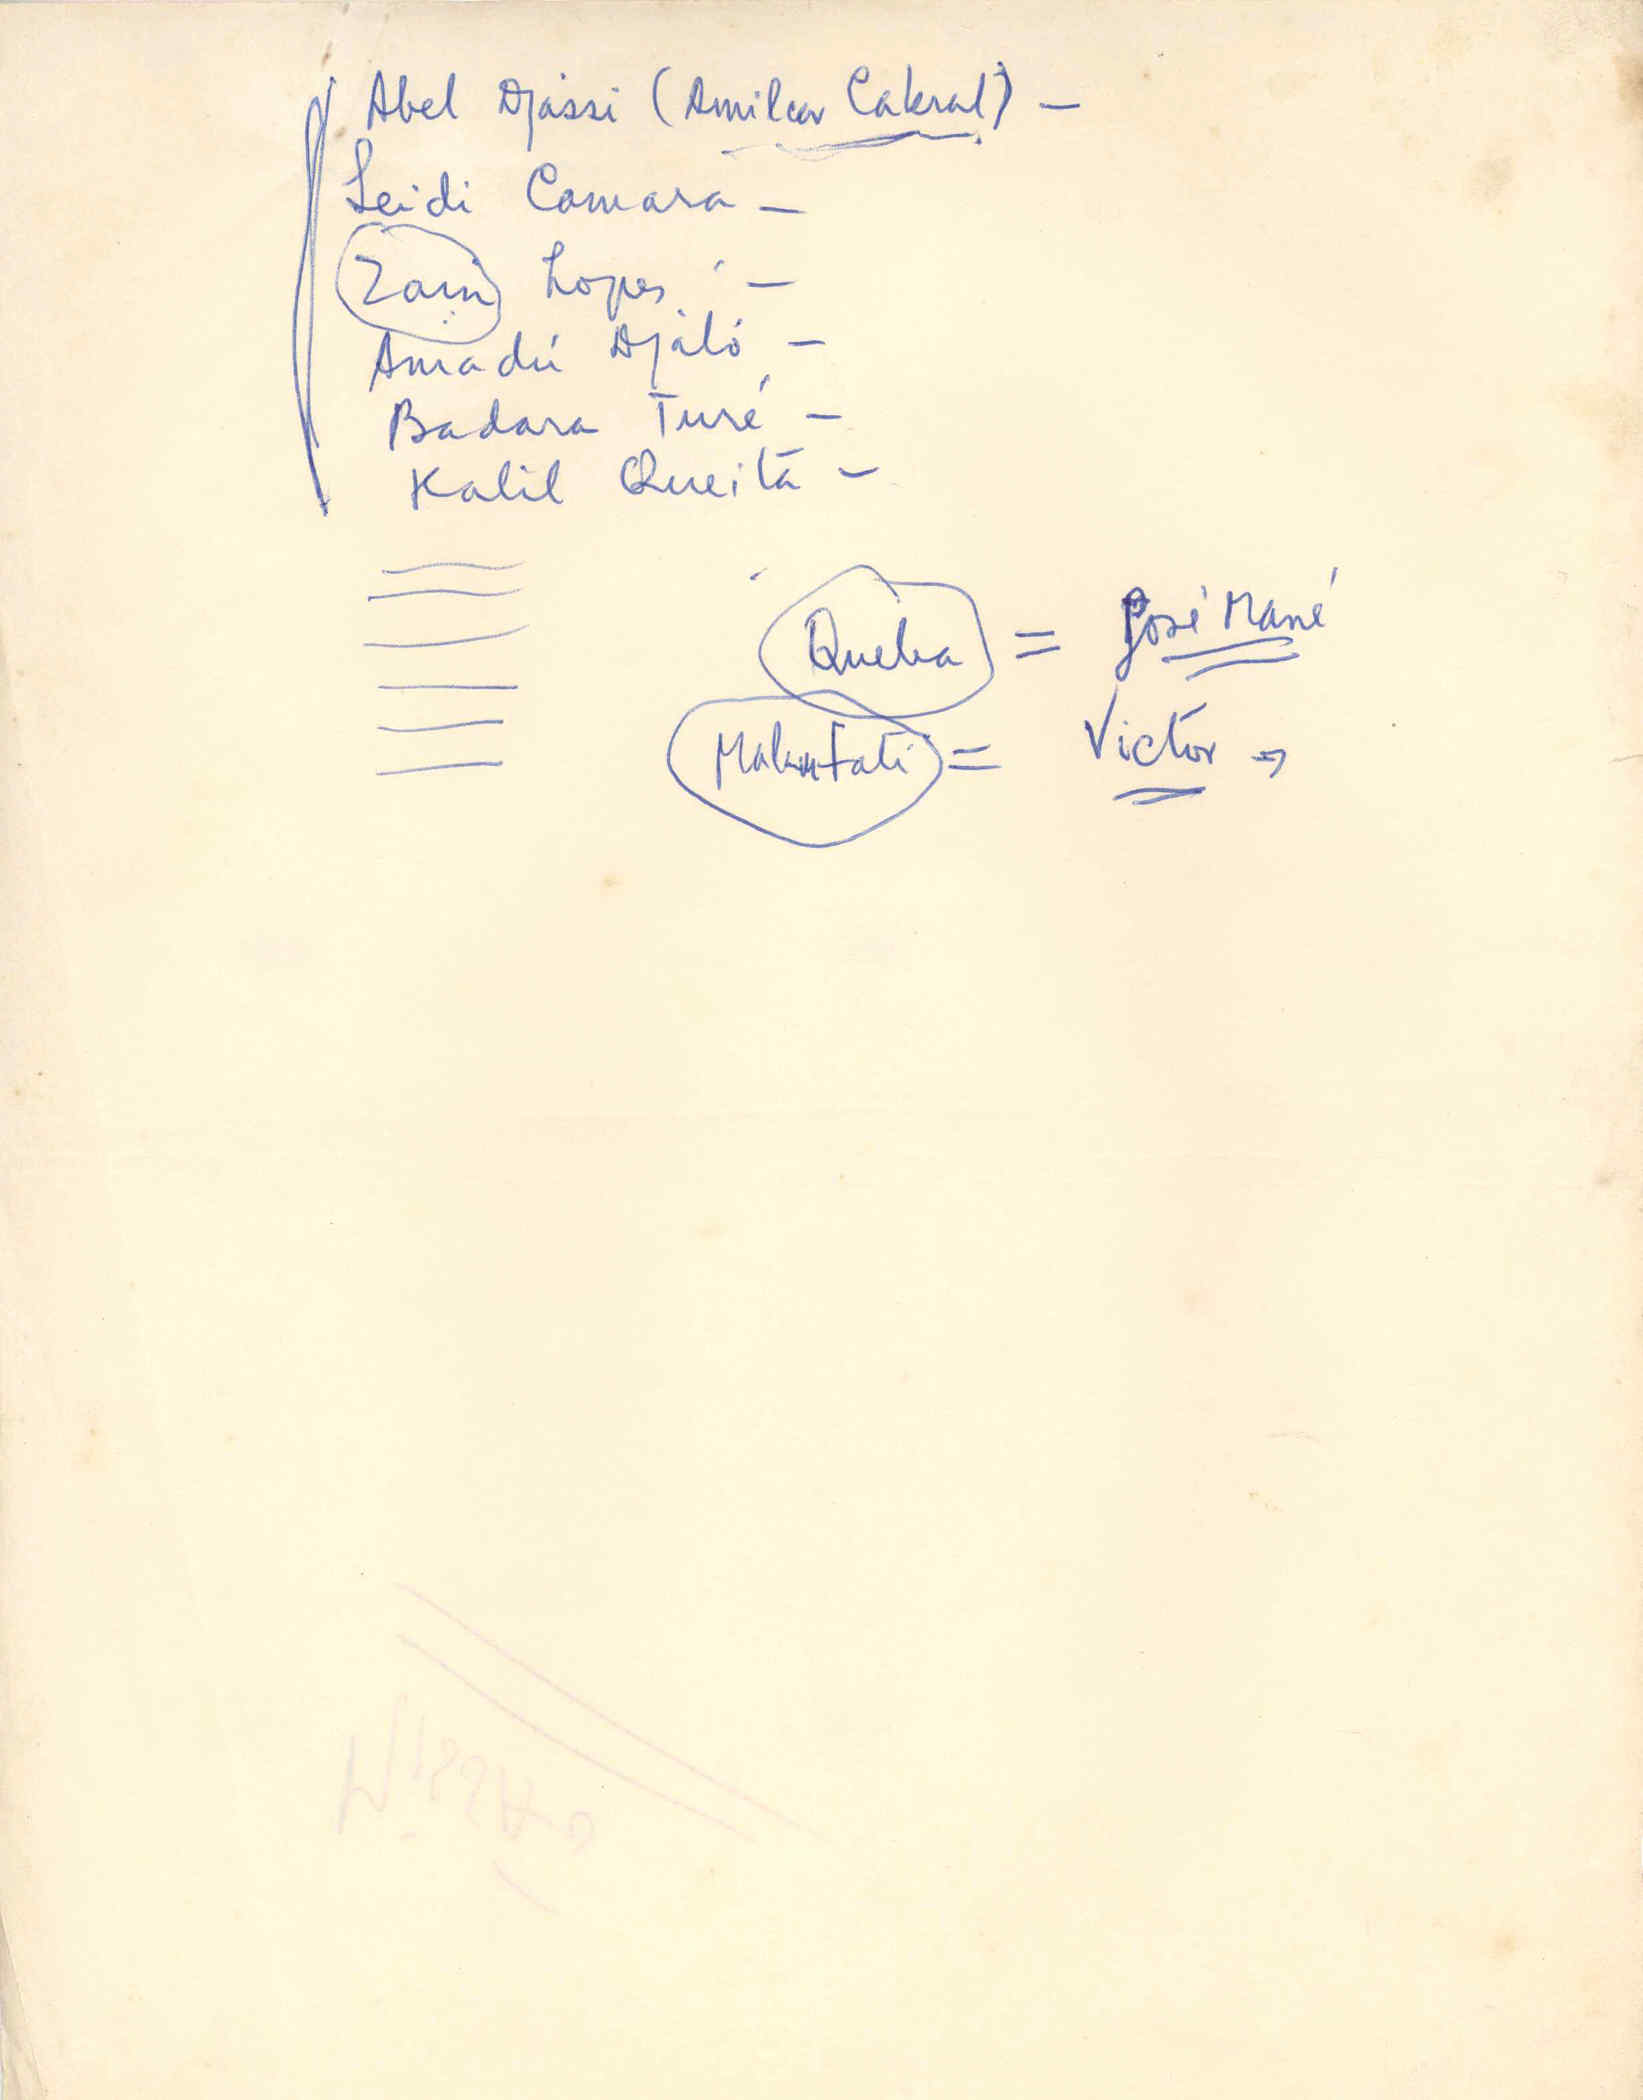 Abel Djassi (Amilcar Cabral) —
Seidi Camara —
Zain Lopes —
Amadú Djaló —
Badara Turé —
Kalil Queità —
Queba = José Mané
= Victor